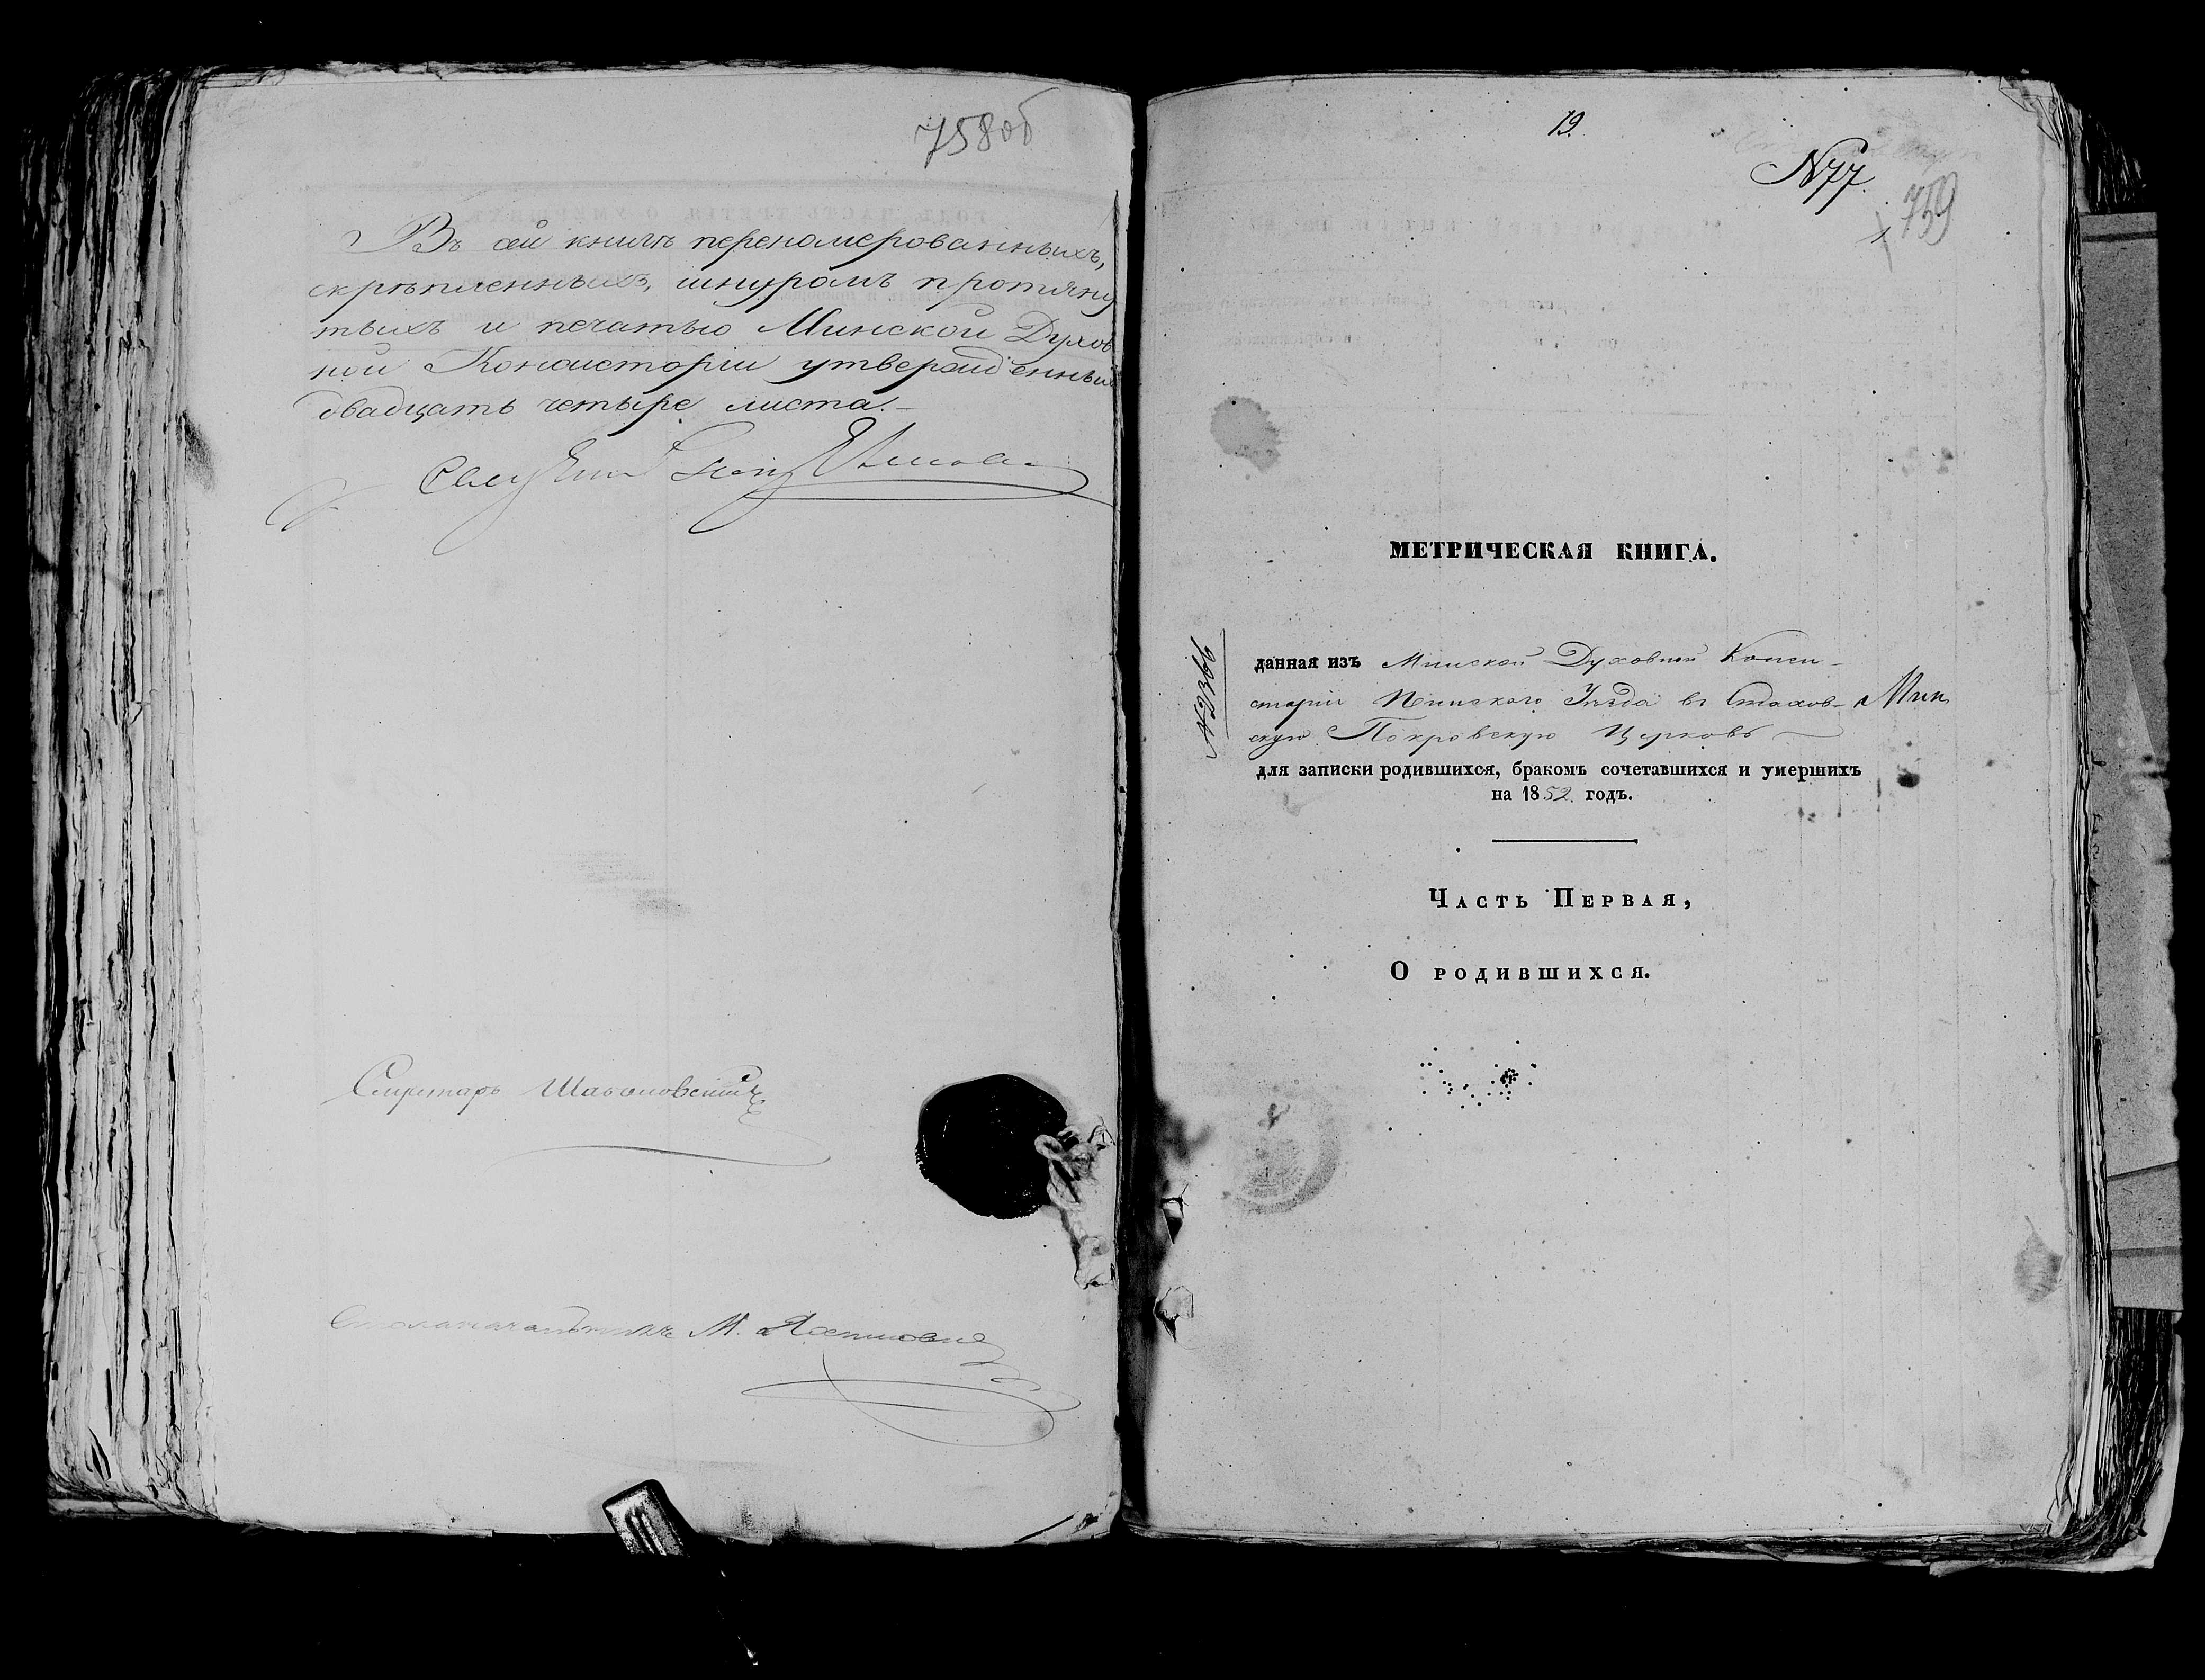 758об
Въ сей книгѣ переномерованныхъ,
скрѣпленныхъ, шнуромъ протяну
тыхъ и печатью Минской Духов
ной Консисторіи утвержденныхъ
двадцать четыре листа.
Секретарь
Столоначальникъ М.
19.
N77.
759
1
МЕТРИЧЕСКАЯ КНИГА.
№2366
данная изъ Минской Духовной Конси-
сторіи Пинскаго Уѣзда въ Стахов- Мин
скую Покровскую Церковь
для записки родившихся, бракомъ сочетавшихся и умершихъ
на 1852 годъ.
Часть Первая,
О родившихся.